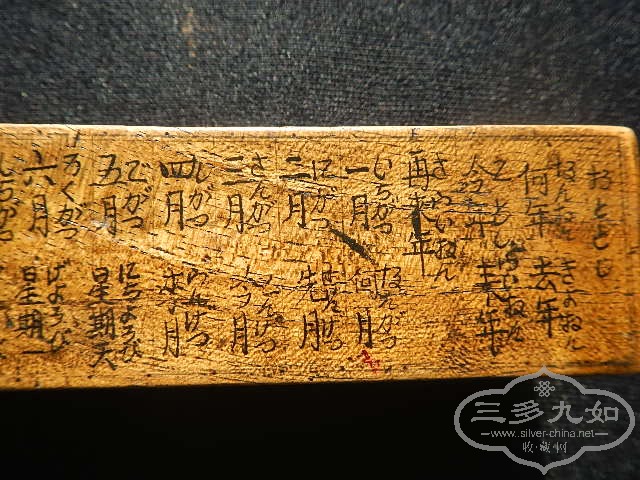 おととし
なんねん きよねん
何年 去年
ことし らいねん
今年 来年
さらいねん
再来年
いちがつ なんがつ
一月 何月
にがつ せんげつ
二月 先月
さんがつ こんげつ
三月 月
しがつ げつ
四月 月
ごがつ にちようび
五月 星期天
ろくがつ げようび
六月 星期一
三多九如
www.silver-china.net
收·藏·网